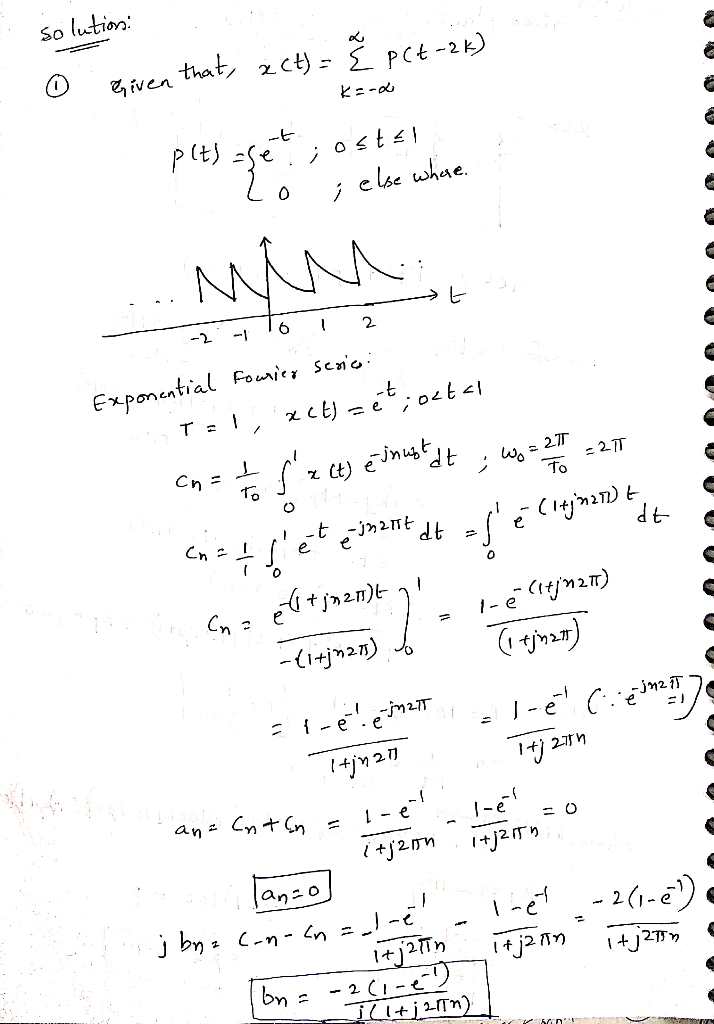 solution:
① Given that, x(t) = ∞ Σ K=-∞ P(t-2K)
P(t) = { e^-t ; 0≤t≤1
0 ; else whare.
... ...
t
-2 -1 0 1 2
Exponential Fourier series:
T = 1, x(t) = e^-t ; 0<t<1
Cn = 1/T0 ∫_0^1 x(t) e^-jnω0t dt ; ω0 = 2π/T0 = 2π
Cn = 1/1 ∫_0^1 e^-t e^-jn2πt dt = ∫_0^1 e^-(1+jn2π)t dt
Cn = e^-(1+jn2π)t / -(1+jn2π) ]_0^1 = 1-e^-(1+jn2π) / (1+jn2π)
= 1-e^-1.e^-jn2π / 1+jn2π = 1-e^-1 / 1+j2πn (∵ e^-jn2π =1)
an = Cn+Cn = 1-e^-1 / 1+j2πn - 1-e^-1 / 1+j2πn = 0
an=0
j bn = C-n - Cn = -1-e^-1 / 1+j2πn - 1-e^-1 / 1+j2πn = -2(1-e^-1) / 1+j2πn
bn = -2(1-e^-1) / j(1+j2πn)